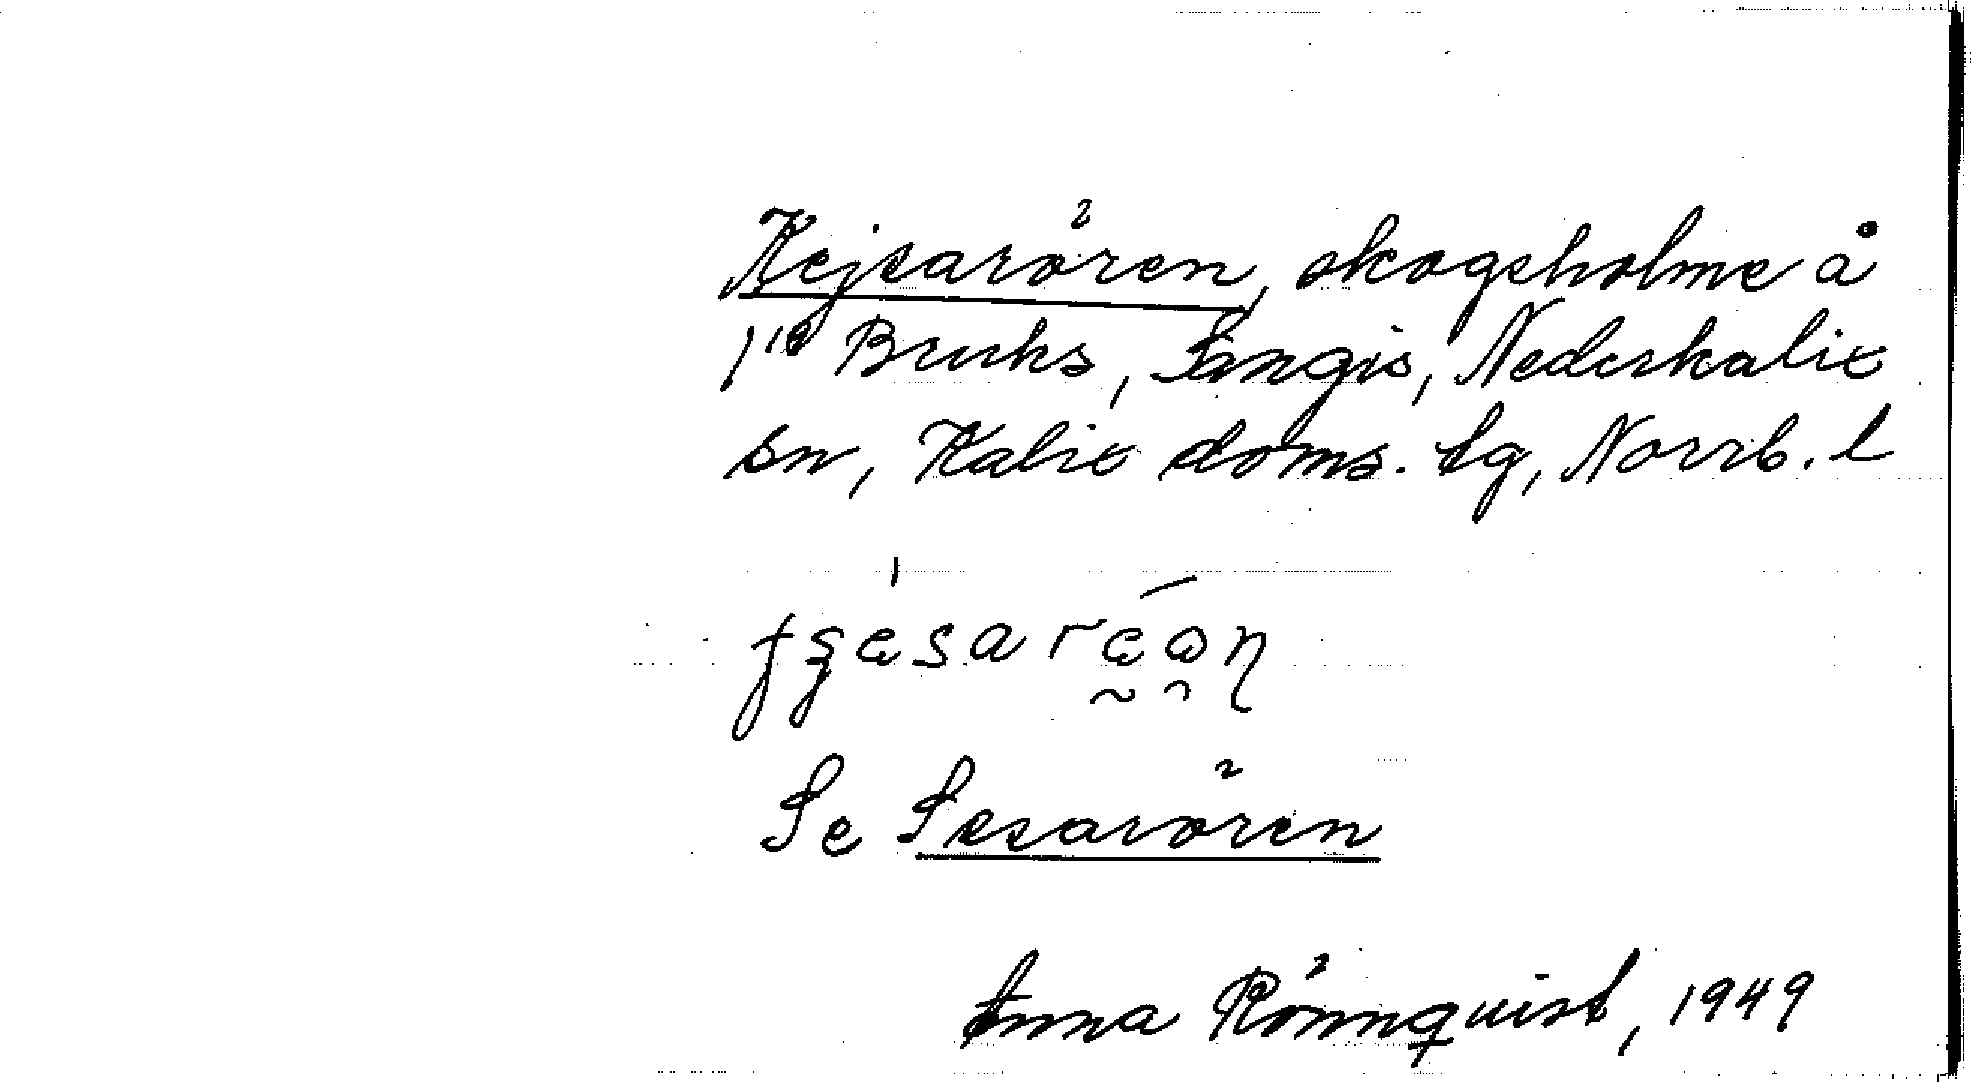 Kejsarören, skogsholme å
1 19 Bruks, Sangis, Nederkalix
sn, Kalix doms. tg, Norrb. l
Se Sesarören
Anna Rönnquist, 1949